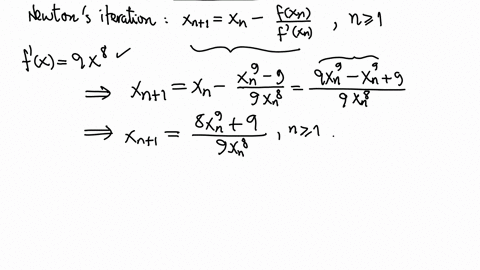 Newton's iteration : xₙ₊₁ = xₙ − f(xₙ)/f'(xₙ) , n⩾1
f'(x) = 9x⁸ ✓
⟹ xₙ₊₁ = xₙ − (xₙ⁹ − 9)/(9xₙ⁸) = (9xₙ⁹ − xₙ⁹ + 9)/(9xₙ⁸)
⟹ xₙ₊₁ = (8xₙ⁹ + 9)/(9xₙ⁸) , n⩾1 .